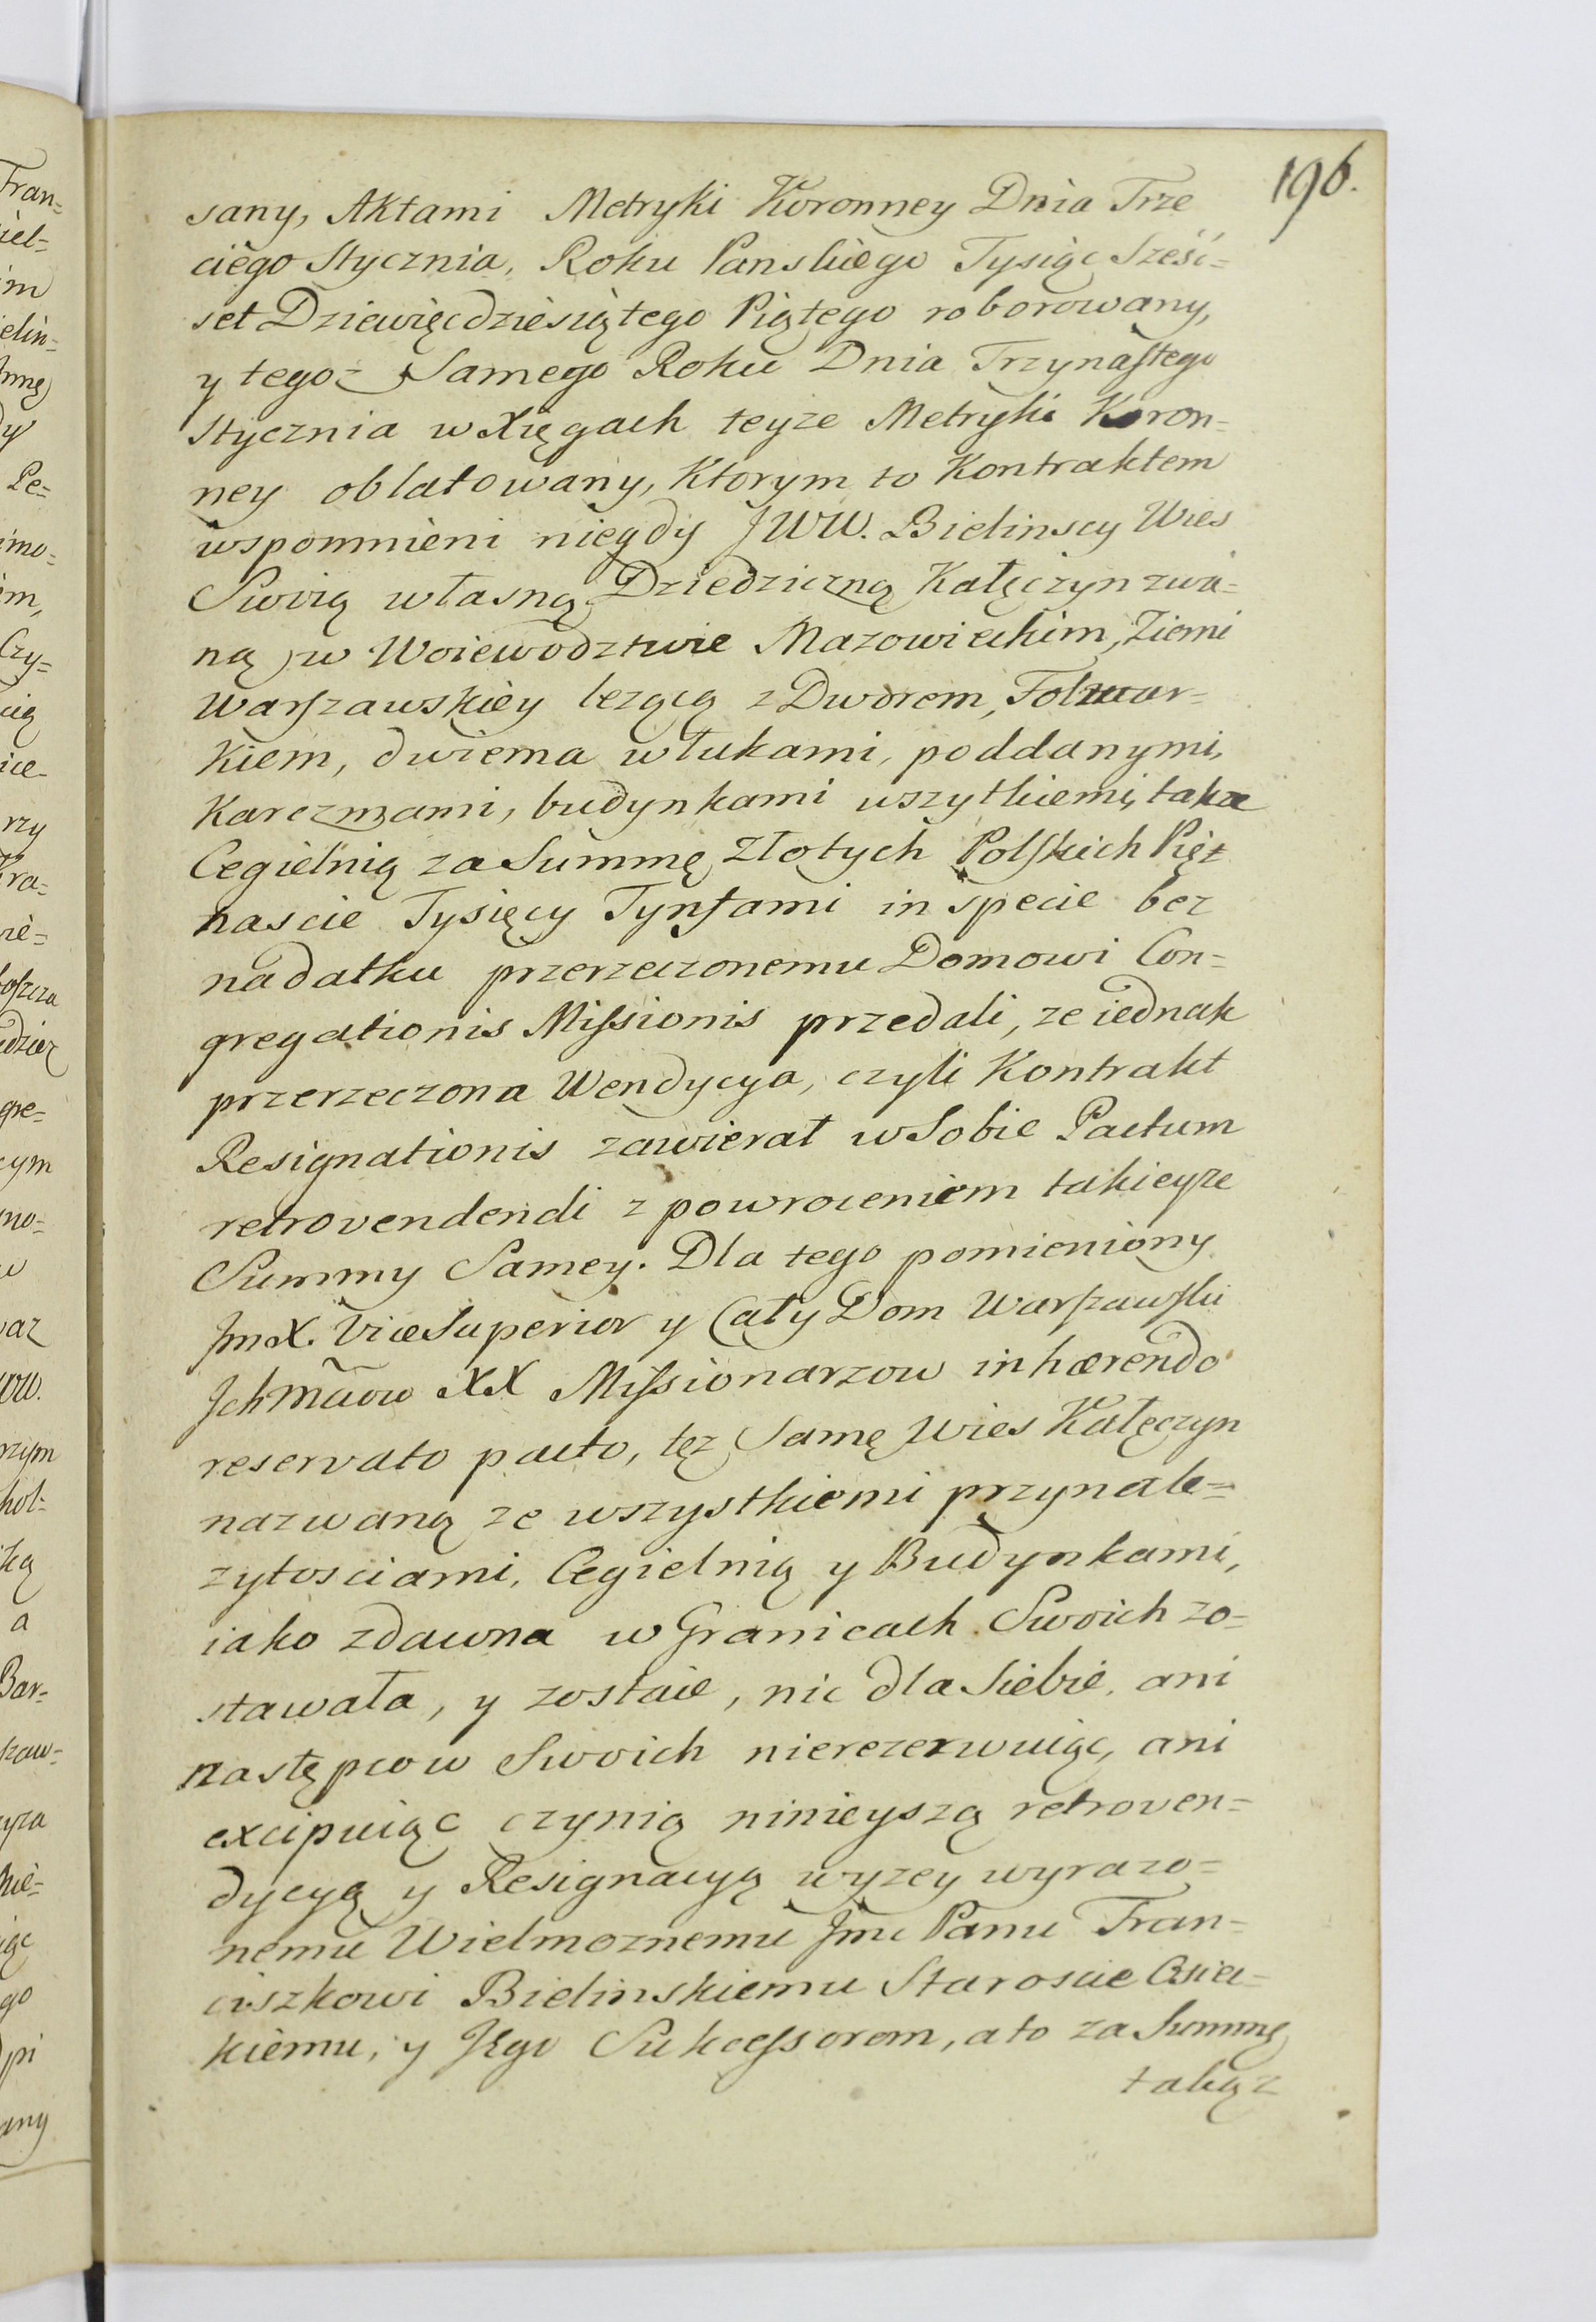 196.
sany, Aktami Metryki Koronney Dnia Trze
ciego Stycznia, Roku Panskiego Tysiąc Sześć=
set Dziewięcdziesiątego Piątego roborowany,
y tegoż Samego Roku Dnia Trzynastego
Stycznia w Xięgach teyze Metryki Koron=
ney oblatowany, Ktorym to Kontraktem
wspomnieni niegdy JWW. Bielinscy Wies
Swoią własną Dziedziczną Kałęczyn zwa=
ną w Woiewodztwie Mazowieckim, Ziemi
Warszawskiey lezącą z Dworem, Folwar=
kiem, dwiema włukami, poddanymi,
Karczmami, budynkami wszytkiemi, takze
Cegielnią za Summę Złotych Polskich Pięt
nascie Tysięcy Tynfami in specie bez
nadatku przerzeczonemu Domowi Con=
gregationis Missionis przedali, ze iednak
przerzeczona Wendycya, czyli Kontrakt
Resignationis zawierał w Sobie Pactum
retrovendendi z powroceniem takieyze
Summy Samey. Dla tego pomieniony
JmX. ViceSuperior y Cały Dom Warszawski
Jchmciow XX Missionarzow inhærendo
reservato pacto, tęz Samę Wies Kałęczyn
nazwaną ze wszystkiemi przynale=
zytosciami, Cegielnią y Budynkami,
iako zdawna w Granicach Swoich zo=
stawała, y zostaie, nic dla Siebie, ani
następcow Swoich nierezerwuiąc, ani
excipuiąc czynią ninieyszą retroven=
dycyą y Resignacyą wyzey wyrazo=
nemu Wielmoznemu Jmć Panu Fran=
ciszkowi Bielinskiemu Staroscie Osiec=
kiemu, y Jego Sukcessorom, a to za Summę
takąz